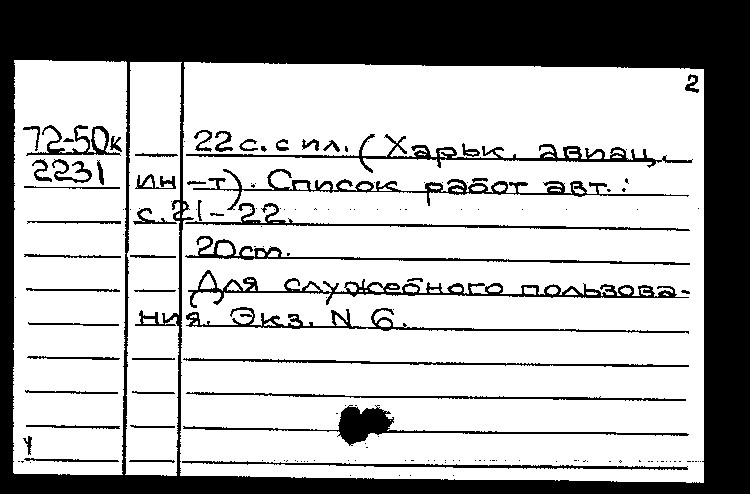 2
72-50к 22 с. с ил. (Харьк. авиац.
2231 ин-т). Список работ авт.:
с. 21-22.
20 см.
Для служебного пользова-
ния. Экз. N 6.